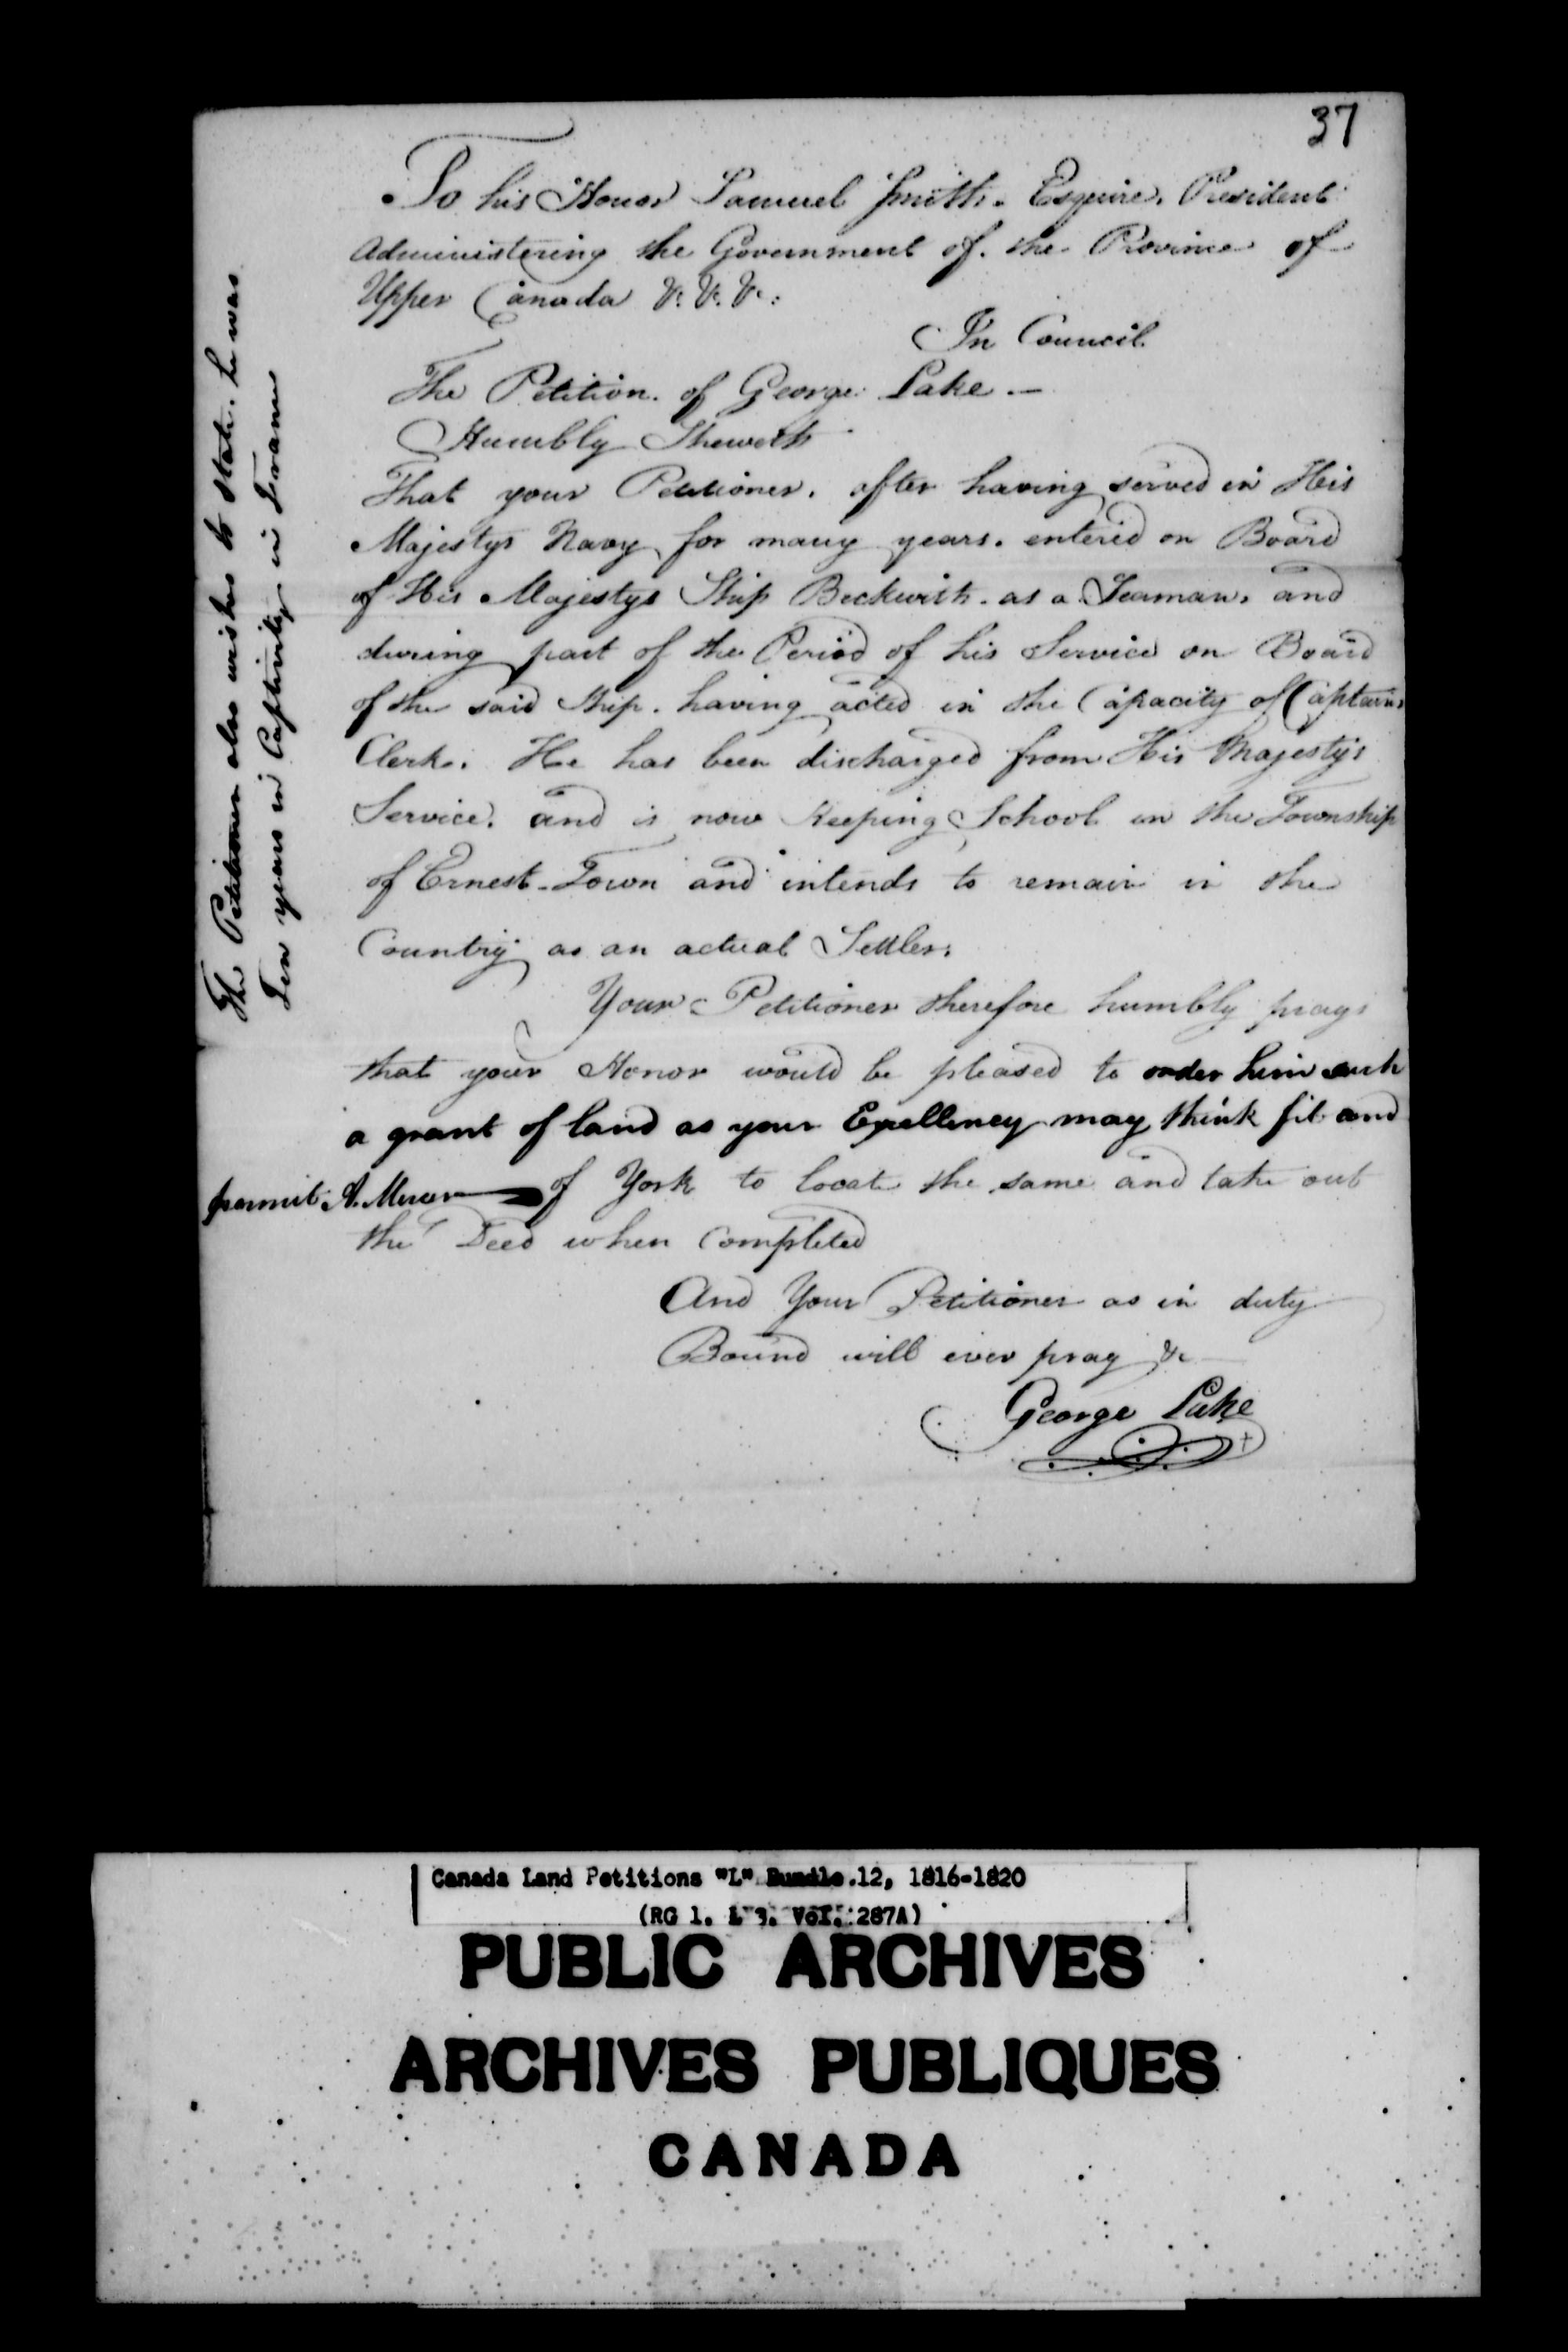 37
To his Honor Samuel Smith. Esquire. President
Administering the Government of. the Province of
Upper Canada &c. &c. &c.
In Council.
The Petition. of George Lake. —
Humbly Sheweth
That your Petitioner. after having served in His
Majestys Navy for many years. entered on Board
of His Majestys Ship Beckwith. as a Seaman. and
during part of the Period of his Service on Board
of the said Ship. having acted in the Capacity of Captains
Clerk. He has been discharged from His Majestys
Service. and is now Keeping School in the Township
of Ernest-Town and intends to remain in the
Country as an actual Settler.
Your Petitioner therefore humbly prays
that your Honor would be pleased to order him such
a grant of land as your Exellency may think fit and
permit A. Mercer of York to locate the same and take out
the Deed when Completed
And Your Petitioner as in duty
Bound will ever pray &c
George Lake
The Petitioner also wishes to state. he was
Ten years in Captivity in France
Canada Land Petitions "L" Bundle.12, 1816-1820
(RG 1. L 3. Vol. 287A)
PUBLIC ARCHIVES
ARCHIVES PUBLIQUES
CANADA